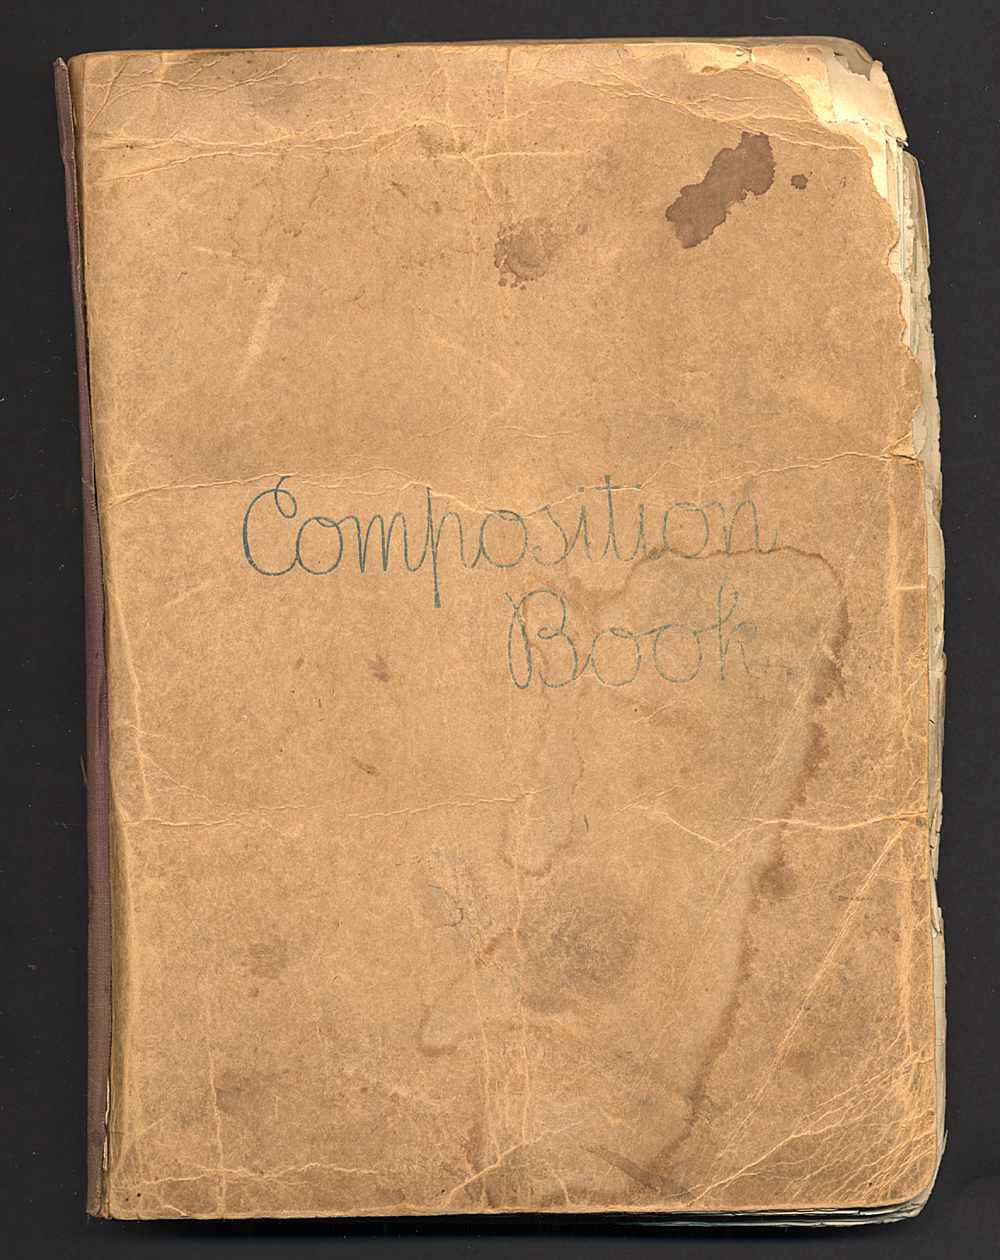 Composition
Book